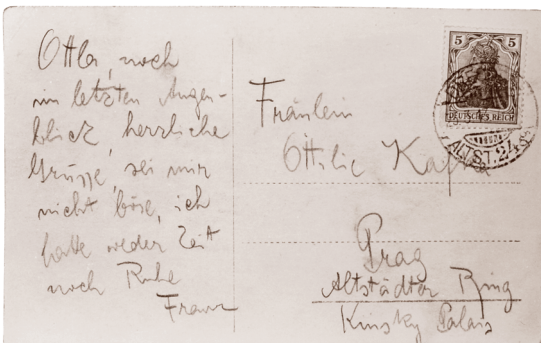 Ottla, noch
im letzten Augen-
blick, herzliche
Grüsse, sei mir
nicht böse, ich
hatte weder Zeit
noch Ruhe
Franz
Fräulein
Ottilie Kafka
Prag
Altstädter Ring
Kinsky Palais
5 5
DEUTSCHES REICH
ALTST. 24